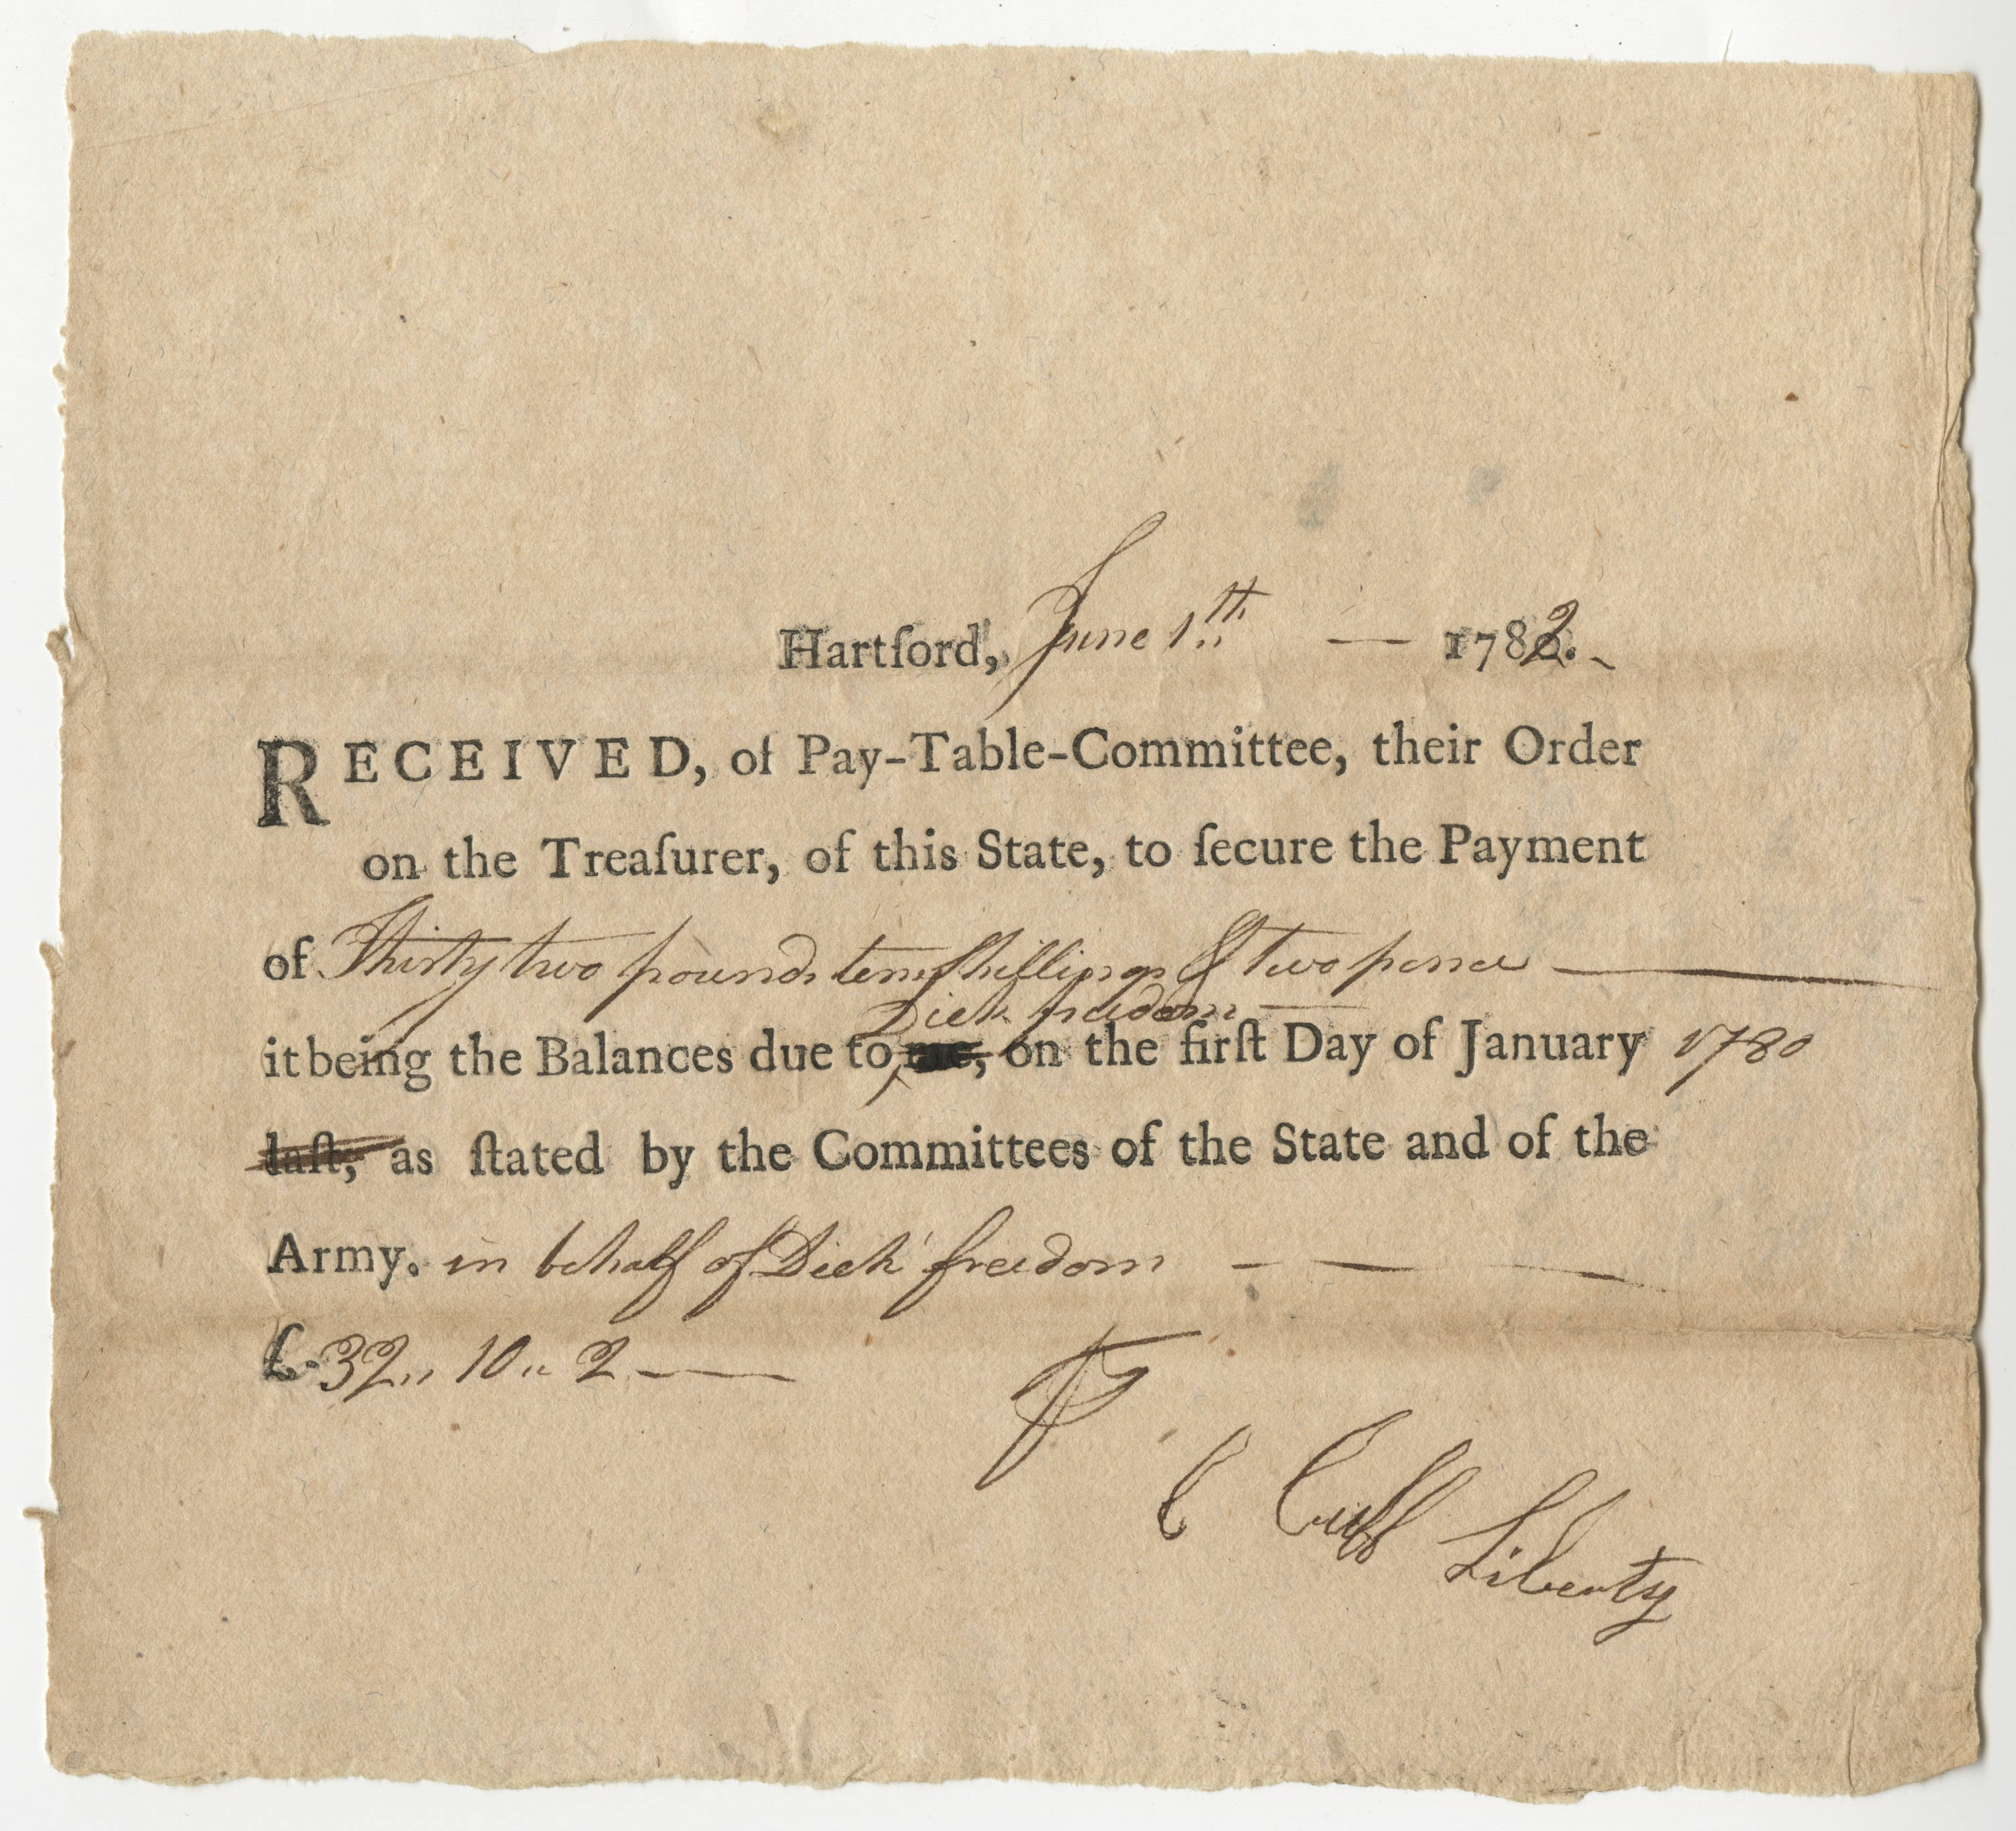 Hartford, June 1th — 1782.
RECEIVED, of Pay-Table-Committee, their Order
on the Treaſurer, of this State, to ſecure the Payment
of Thirty two pounds ten Shillings & two pence —
Dick freedom —
it being the Balances due to me, on the firſt Day of January 1780
laſt, as ſtated by the Committees of the State and of the
Army. in behalf of Dick freedom — — —
£. 32,, 10,, 2 —
Cuff Liberty